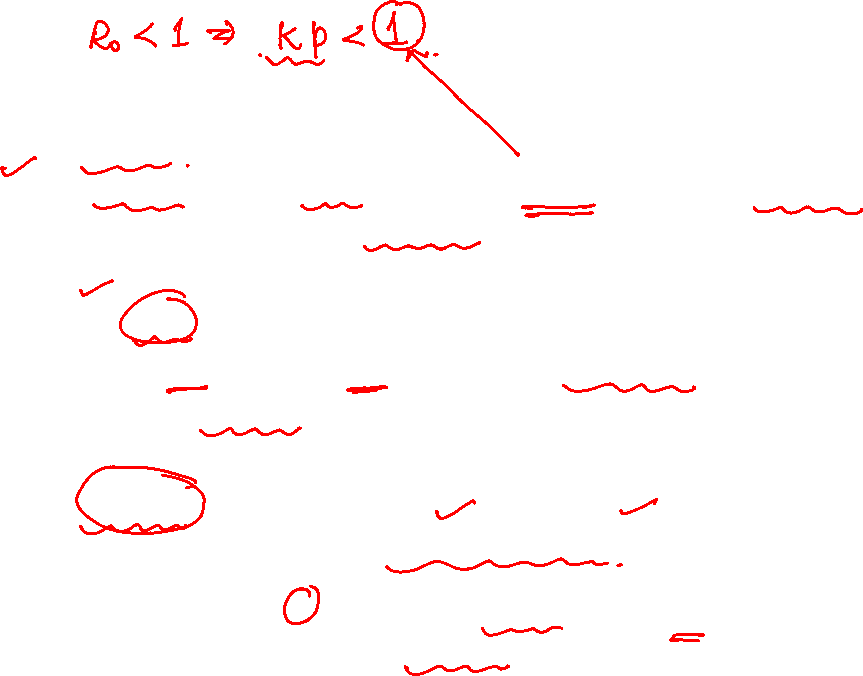 R₀ < 1 ⇒ kp < 1